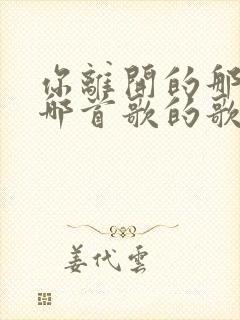 你離開的那
那首歌的歌
姜代雲